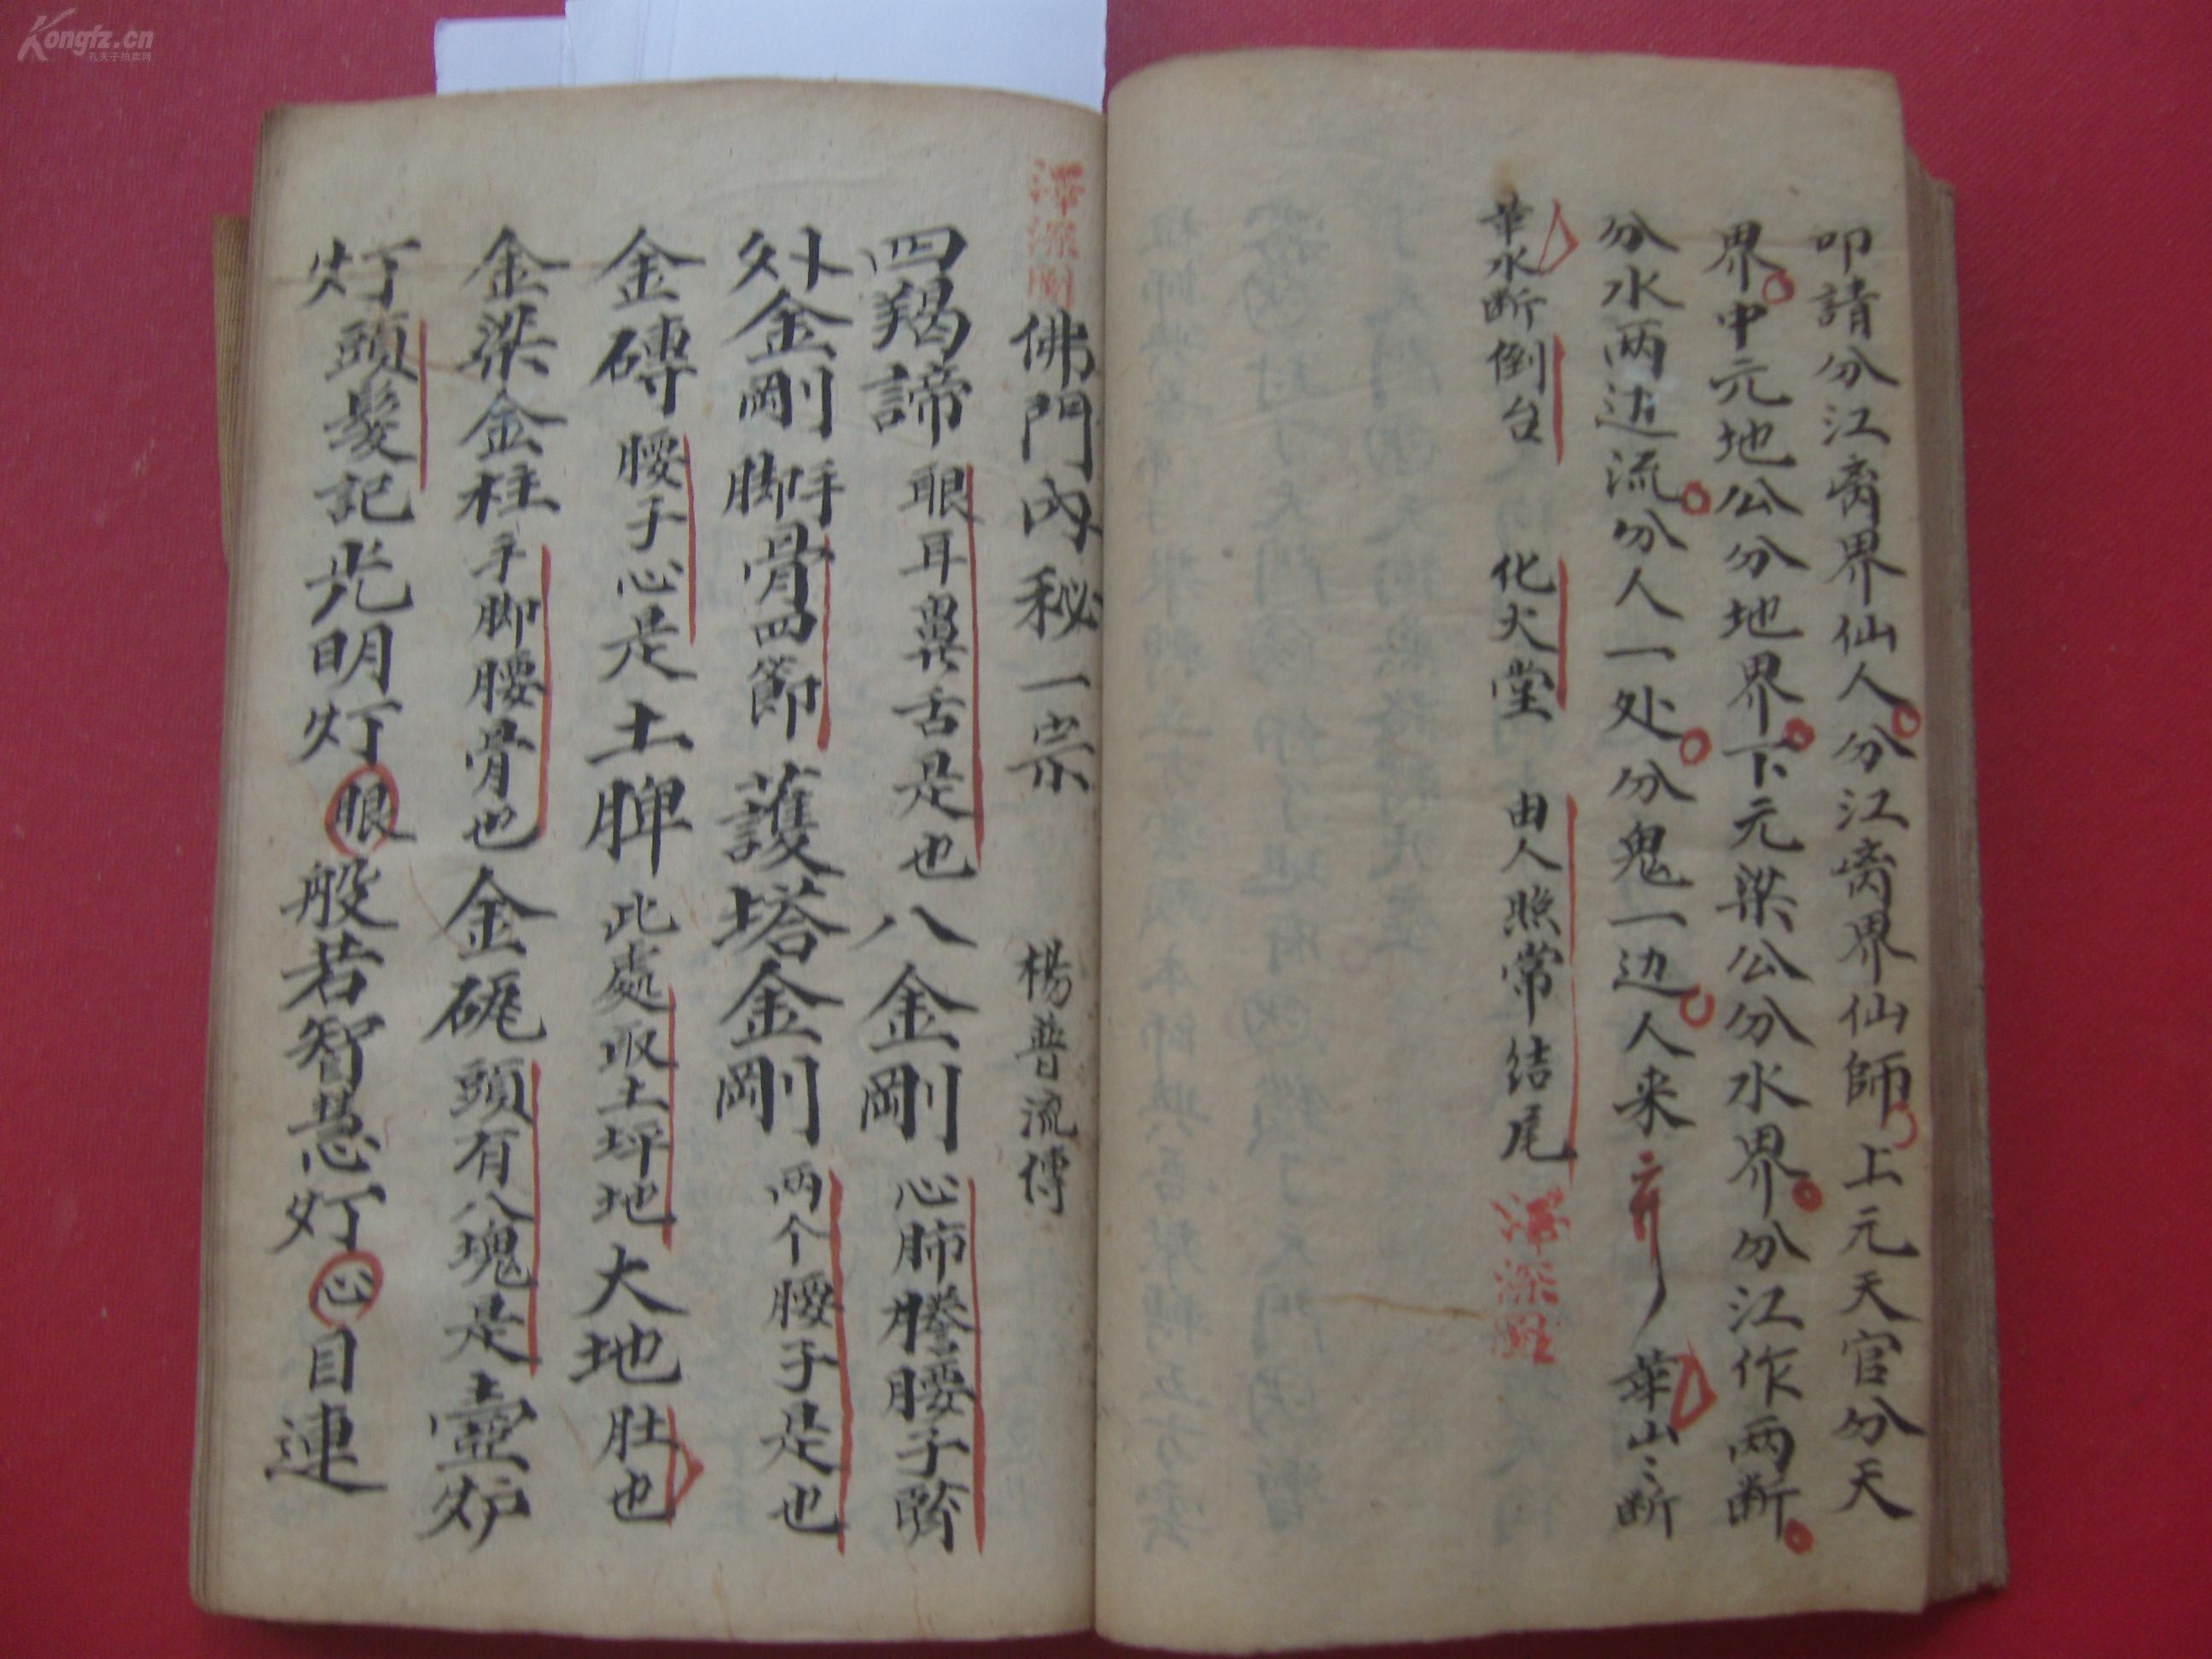 叩請分江离界仙人分江离界仙師上元天官分天
界中元地公分地界下元梁公分水界分江作两断
分水两边流分人一处分鬼一边人来 華山〻断
華水断倒台 化火堂 由人照常结尾
佛門内秘一宗 楊普流傳
四羯諦眼耳鼻舌是也八金剛心肺 腰子
外金剛脚手骨四節護塔金剛两个腰子是也
金磚腰子心是土脾此處取土坪地大地肚也
金梁金柱手脚腰骨也金硊頭有八塊是壺炉
灯頭髮記光明灯眼般若智慧灯心目連
Kongfz.cn
孔夫子拍卖网